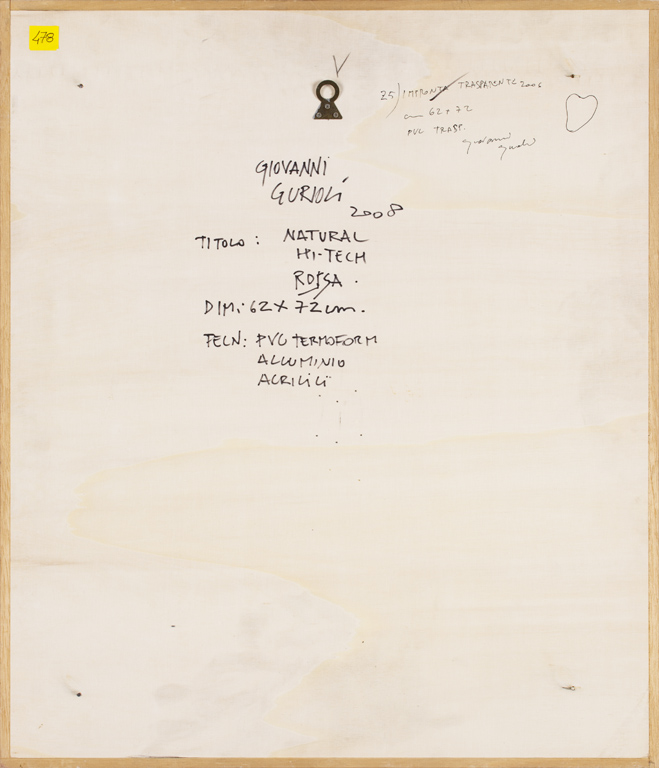 478
V
25) IMPRONTA TRASPARENTE 2006
cm 62 x 72
PVC TRASP.
Giovanni
Gurioli
GIOVANNI
GURIOLI
2008
TITOLO: NATURAL
HI-TECH
ROSSA.
DIM: 62 X 72 cm.
TECN: PVC TERMOFORM
ALLUMINIO
ACRILICI